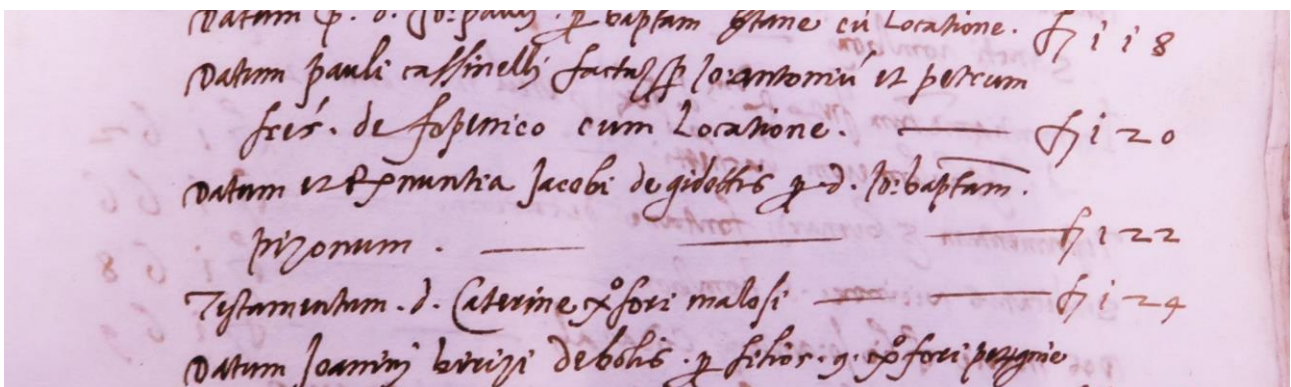 Datum p. d. Jo: pauli. p baptam cū Locatione. f 118
Datum pauli cassinelli factū p Jo: antoniū et petrum
fres. de fopenico cum Locatione. f 120
Datum et Renuntia Jacobi de gidottis p d. Jo: baptam.
pizonum. f 122
Testamentum. d. Caterine xpofori malosi f 124
Datum Joanini p filios. q. xpofori